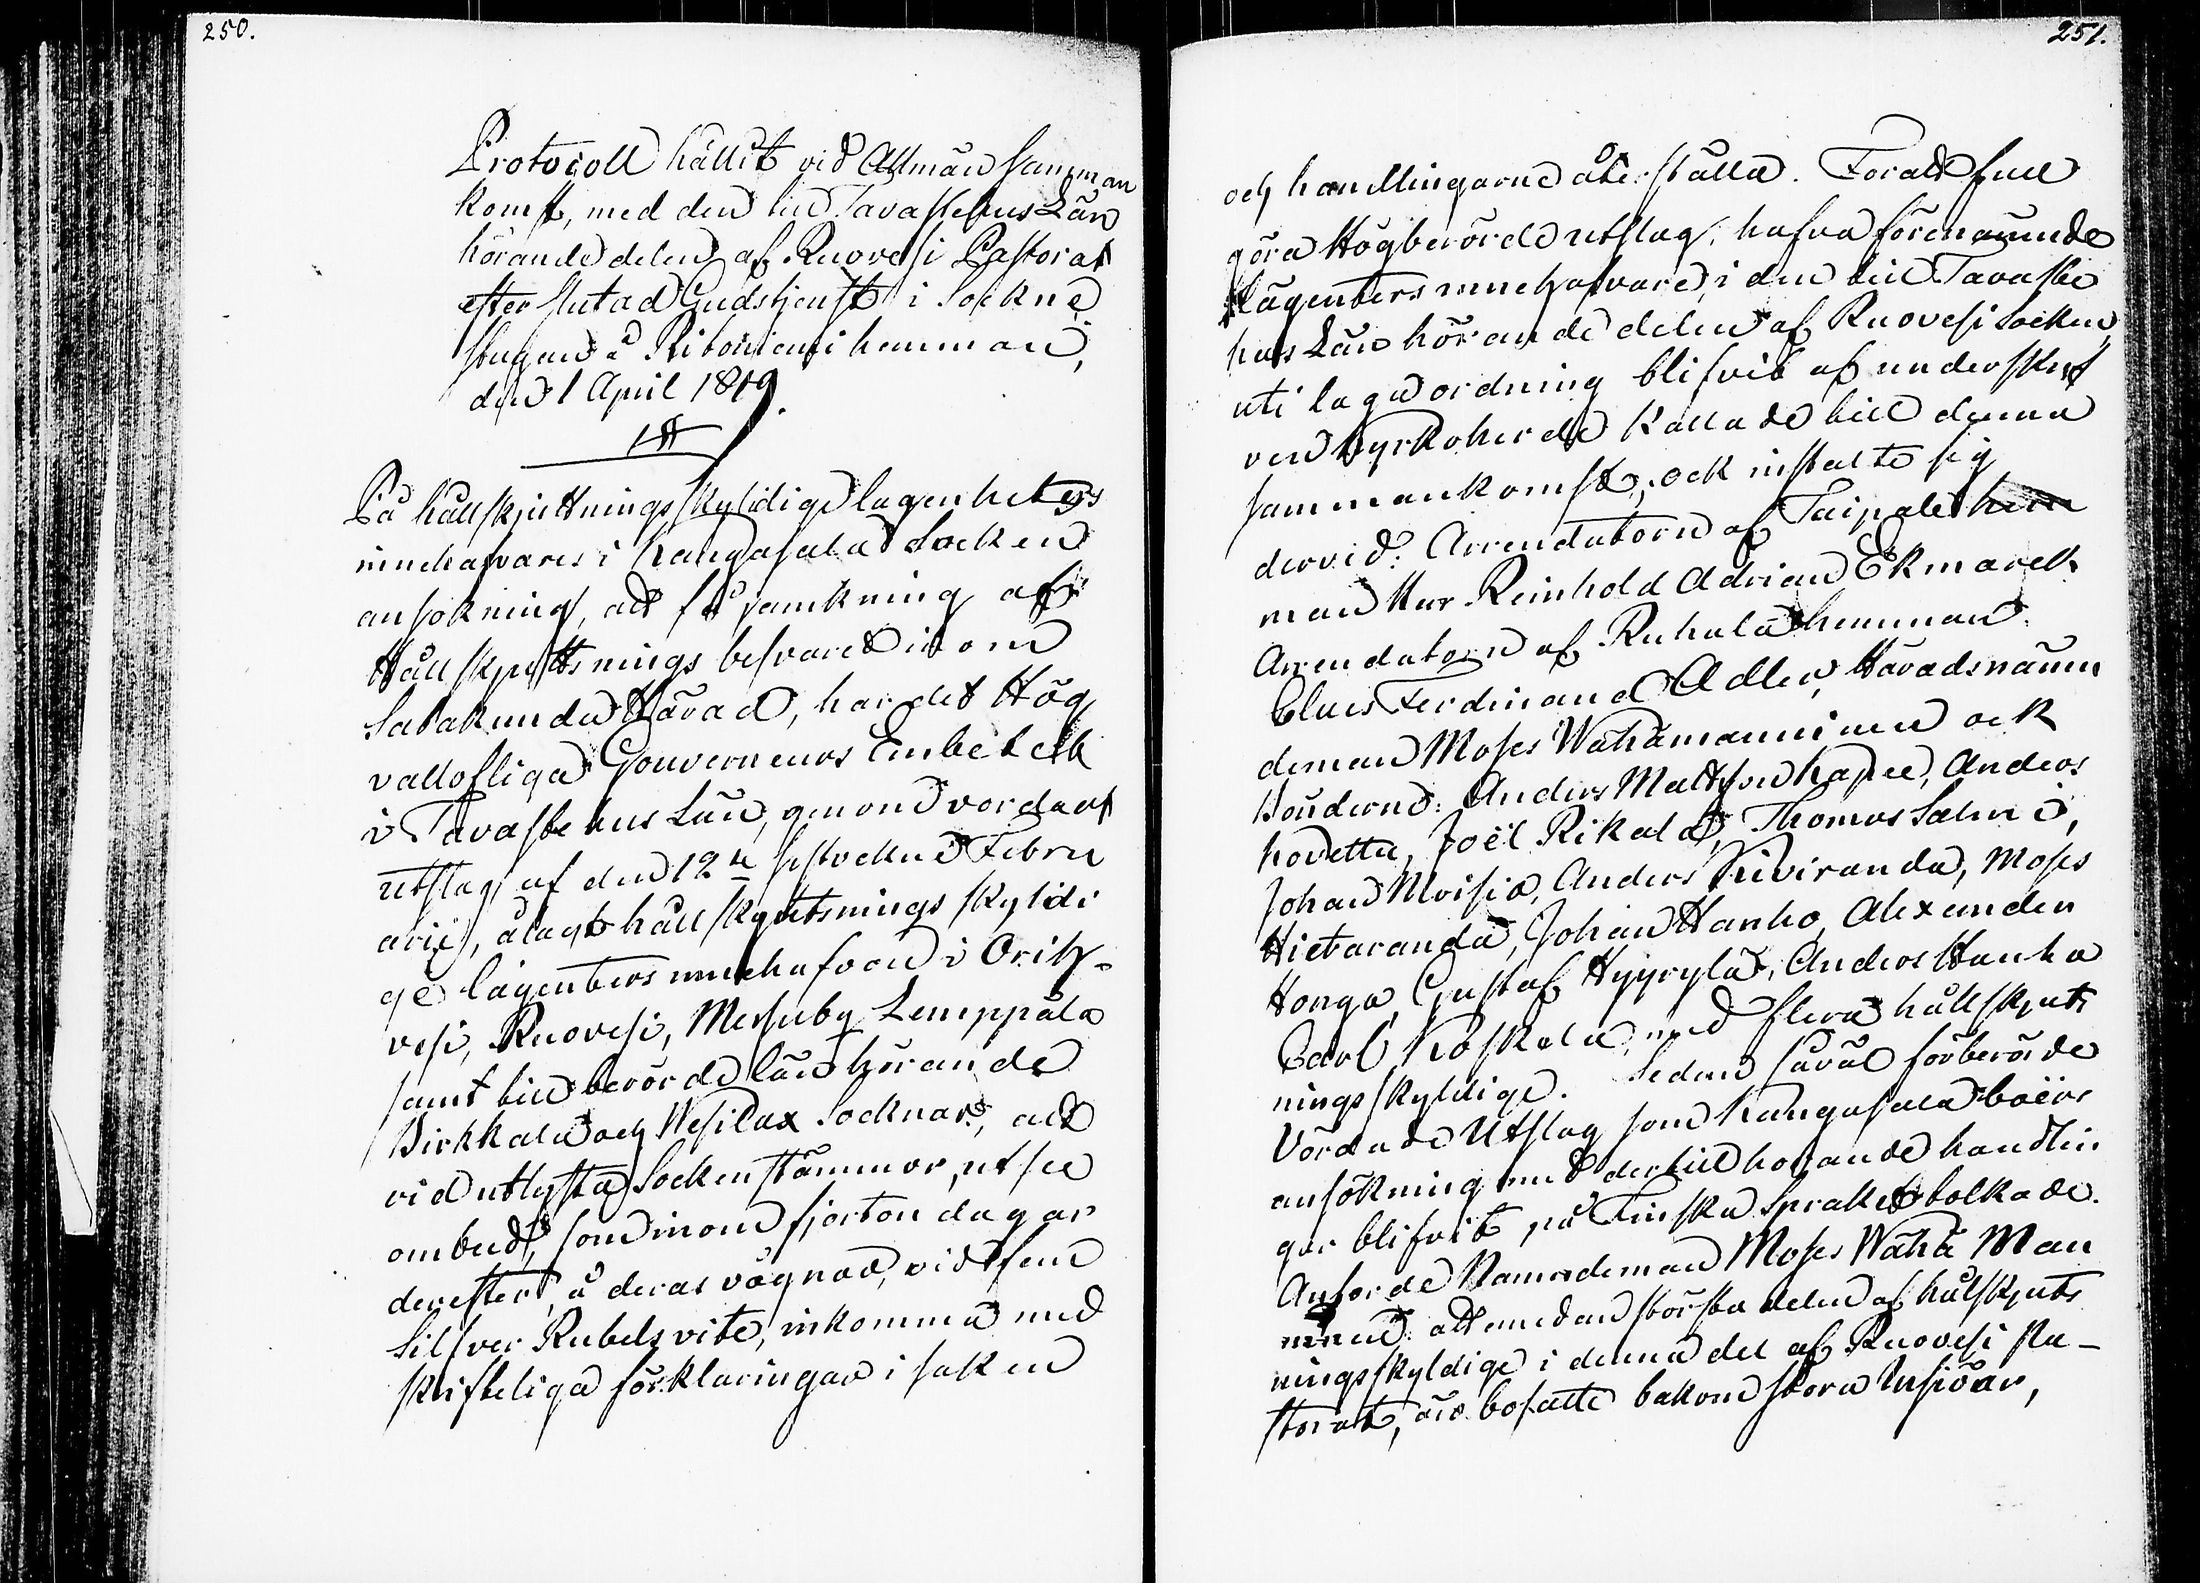 250.
Protocoll hållit vid Allmän samman
komst, med den till Tavastehus Län
hörande delen af Ruovesi Pastorat
efter slutad Gudstjenst i Sockne
stugan å Ritoniemi hemman,
den 1 April 1819.
1 §
På hållskjuttningsskyldige lägenheters
innehafvares i Kangasala Socken
ansökning, att få jemkning af
Hållskjuttsnings besvaret inom
Satakunda Härad, har det Hög
vällofliga Gouverneurs Embetet
i Tavastehus Län, genom vördart
utslag af den 12te sistvekne Febru
arii, ålagt hållskjutsnings skyldi
ge lägenters innehafvare i Orih-
vesi, Ruovesi, Messuby Lemppälä
samt till berörde län hörande
Birkkala och Wesilax Socknar, att
vid utlysta Sockenstämmor, utse
ombud, som inom fjorton dagar
derefter, å deras vägnar, vid fem
Silfver Rubels vite, inkomma med
skrifteliga förklaringar i saken
251.
och handlingarne återställa. Till att full
göra Högberörde utslag, hafva förenämnde
lägenters innehafvare, i den till Tavaste
hus Län hörande delen af Ruovesi Socken,
uti laga ordning blifvit af underskref
ven Kyrkoherde kallade till denna
sammankomst, ock instälte sig
dervid: Arrendatorn af Taipale hem
man Herr Reinhold Adrian Ekmarck
Arrendatorn af Ruhala hemman
Claes Ferdinand Adler, Häradsnämn
deman Moses Wähämanninen ock
Bönderne: Anders Mattsson Kapee, Anders
Kovetta, Joël Rikala, Thomas Salmi,
Johan Moisio, Anders Kiviranda, Moses
Hietaranda, Johan Hanho, Alexander
Honga, Gustaf Hyyrylä, Anders Hanho
Carl Koskela, med flera hållskjuts
ningsskyldige. Sedan såväl förberörde
Vördade Utslag som Kangasala boërs
ansökning med dertill hörande handlin
gar blifvit på Finska Språket tolkade.
Anförde Nämndeman Moses Wähä Man
ninen: att emedan största delen af hålskjuts
ningsskyldige i denna del af Ruovesi Pa-
storat, äro bosatte bakom stora Insjöar,